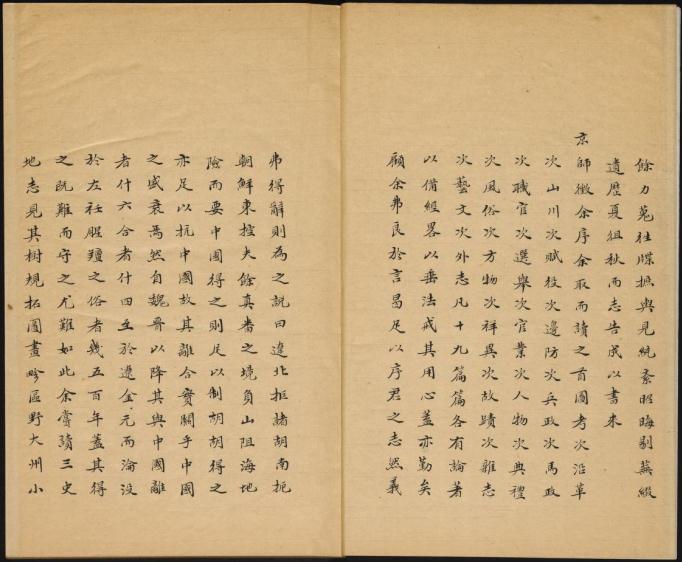 餘力蒐社牒摭與見統紊昭晦剔蕪綴
遺歷夏徂秋而志告成以書來
京師徵余序余取而讀之首圖考次沿革
次山川次賦役次邊防次兵政次馬政
次職官次選舉次官業次人物次典禮
次風俗次方物次祥異次故蹟次雜志
次藝文次外志凡十九篇篇各有論著
以備經畧以垂法戒其用心蓋亦勤矣
顧余弗良於言曷足以序君之志然義
弗得辭則為之說曰遼北拒諸胡南扼
朝鮮東控夫餘真番之境負山阻海地
險而要中國得之則足以制胡胡得之
亦足以抗中國故其離合實關乎中國
之盛衰焉然自魏晉以降其與中國離
者什六合者什四至於遼金元而淪沒
於左衽腥羶之俗者幾五百年蓋其得
之既難而守之尤難如此余嘗讀三史
地志見其樹規拓圖畫畛區野大州小